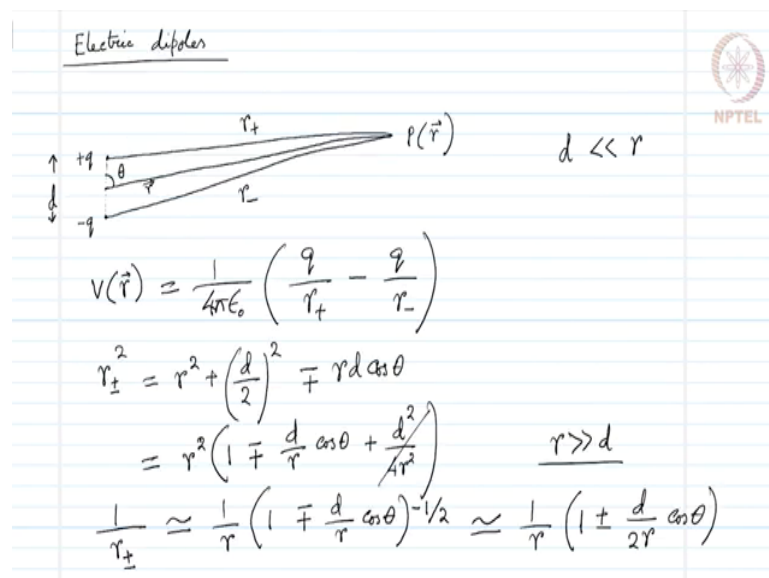 Electric dipoles
NPTEL
r₊
P(r⃗)
d << r
+q
θ
d
r⃗
r₋
-q
V(r⃗) = 1/4πϵ₀ (q/r₊ − q/r₋)
r±² = r² + (d/2)² ∓ rd cosθ
= r² (1 ∓ d/r cosθ + d²/4r²) r>>d
1/r± ≃ 1/r (1 ∓ d/r cosθ)^-1/2 ≃ 1/r (1 ± d/2r cosθ)